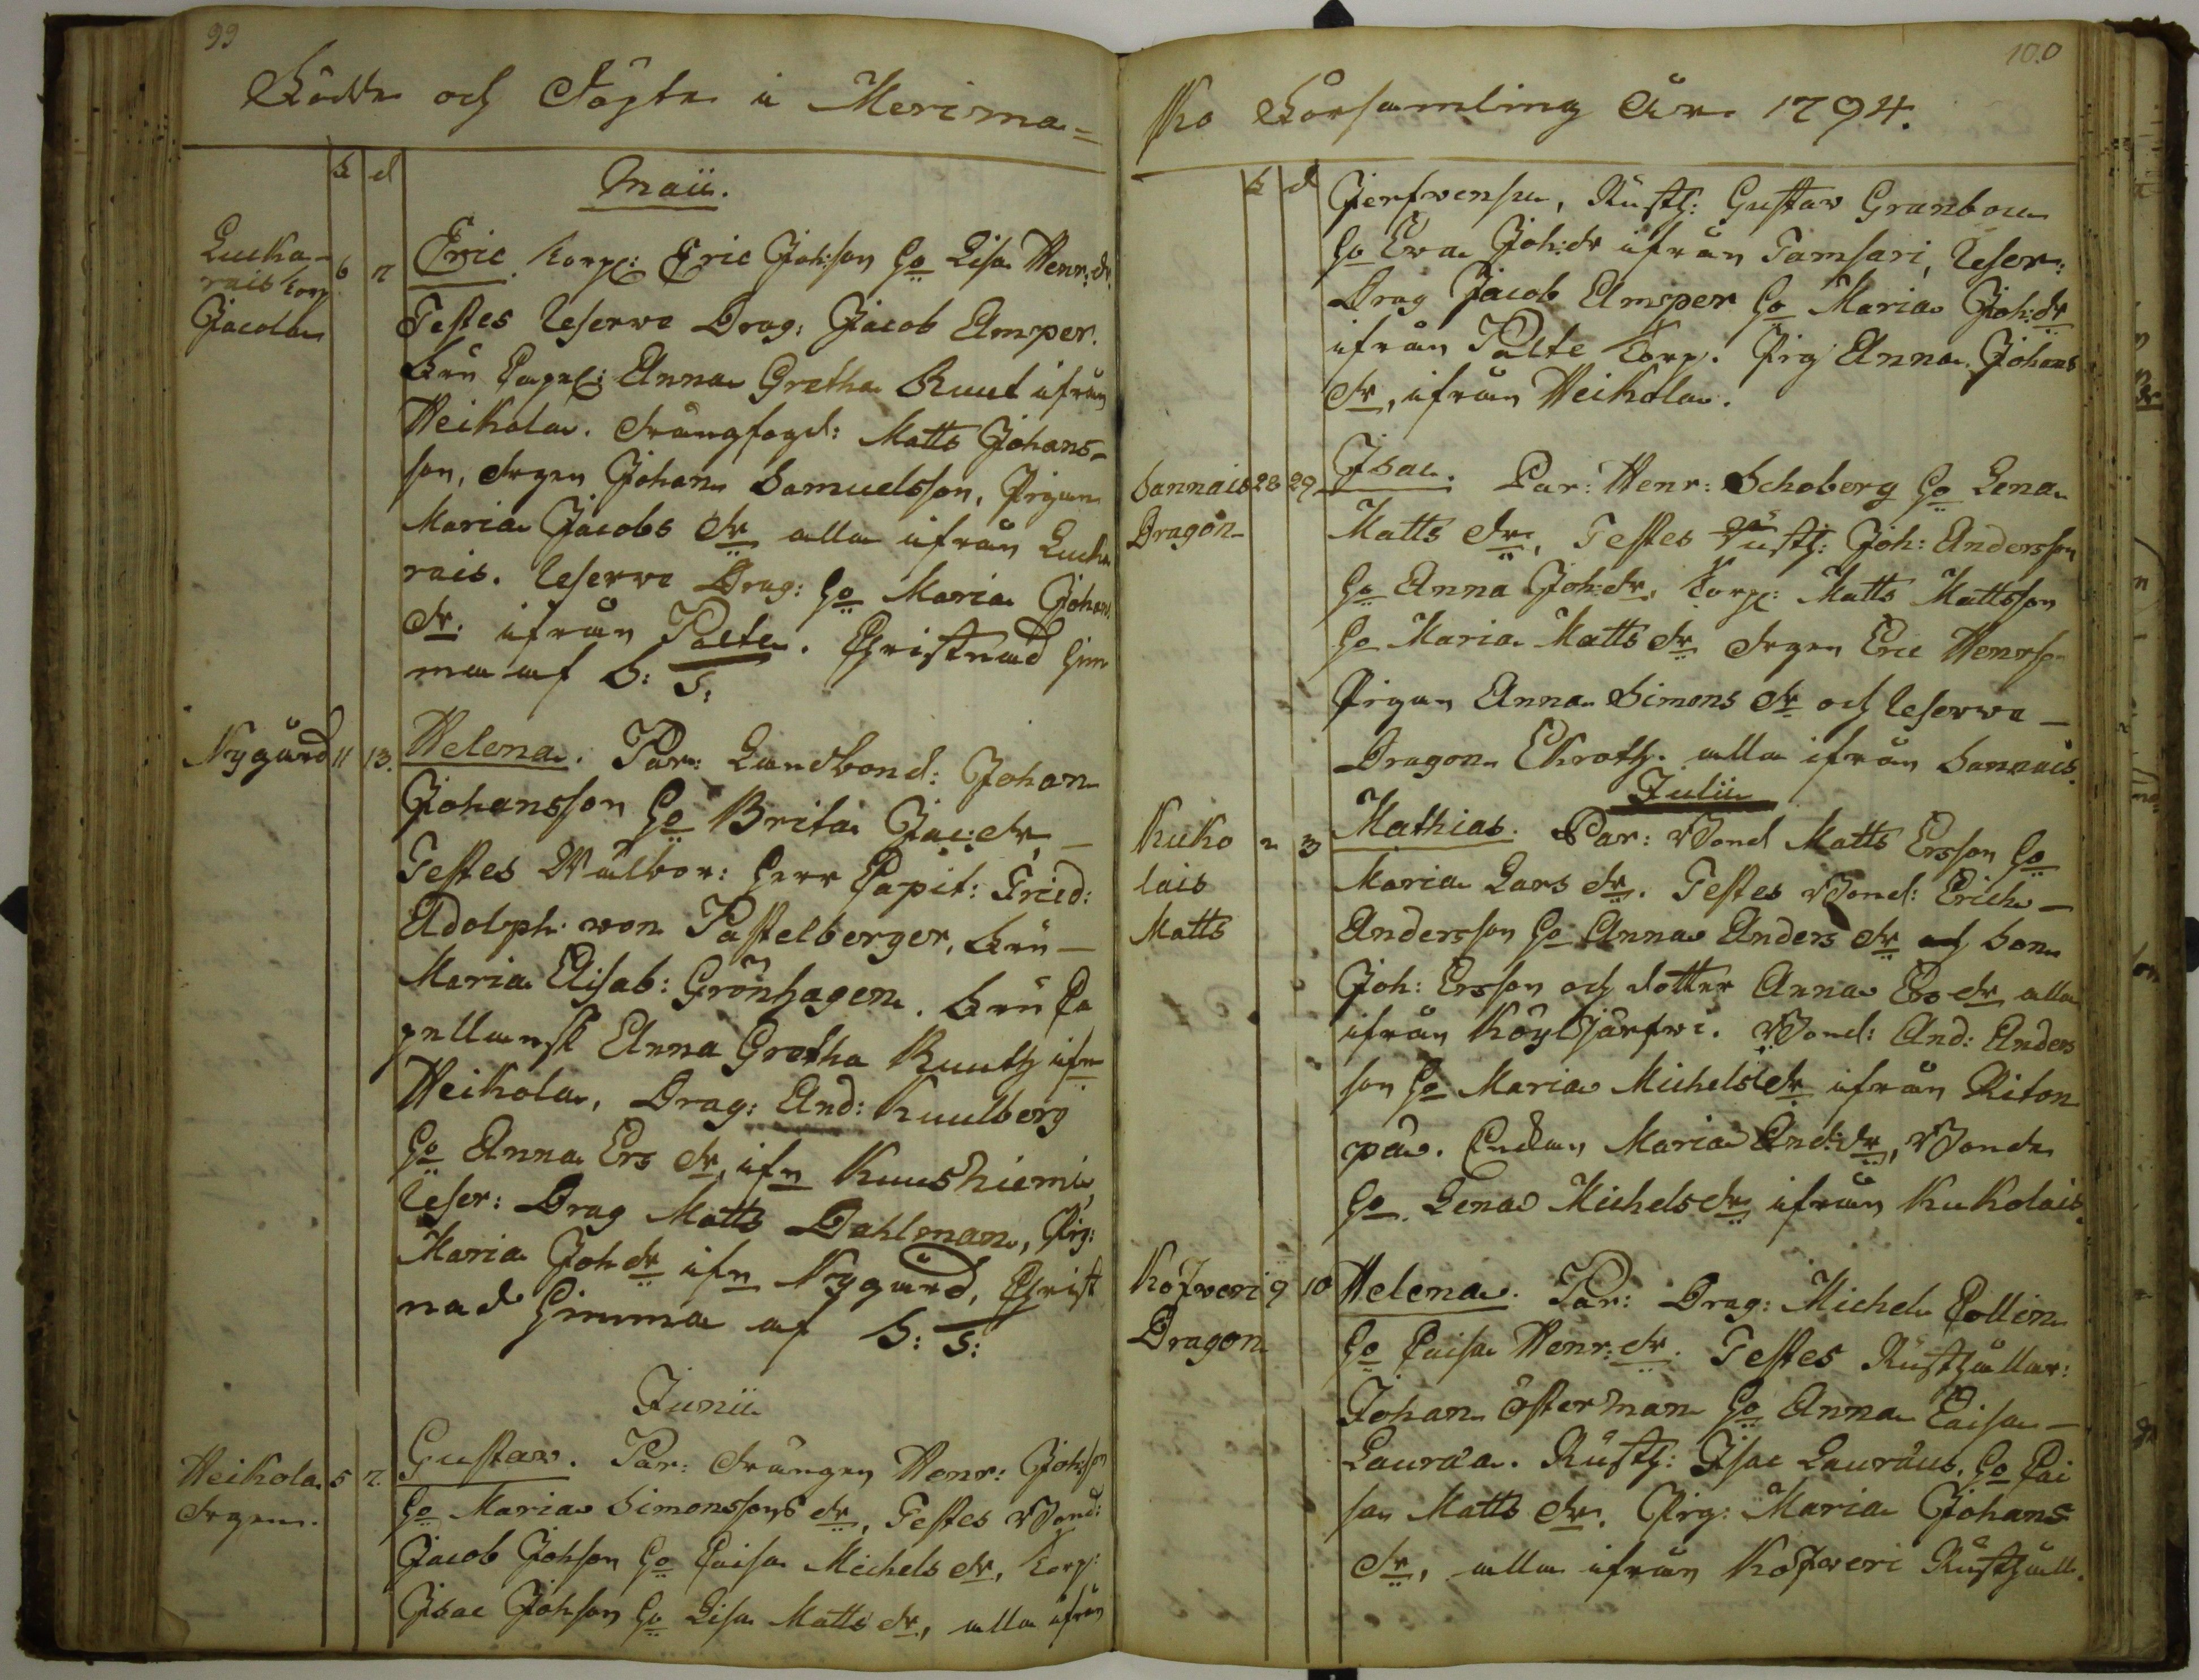 99
Födde och Döpte i Merima=
f d
Maii.
Lucka-
rais torp
Jacola
6 7 Eric. torp: Eric Joh:son Ho Lisa Henr:dr.
Testes Reserve Drag: Jacob Amper.
Fru Capel: Anna Gretha Ruut ifrån
Heikola. drängfogd: Matts Johans-
son, drgen Johan Samuelsson, Pigan
Maria Jacobs dr alla ifrån Lucka
rais. Reserve Drag: Ho Maria Johans
dr. ifrån Palte. Christnad hem
ma af S: T:
Nygård 11 13. Helena. Par: Landbond: Johan
Johansson Ho Brita Jac:dr. —
Testes Wälbor: Herr Capit: Fried:
Adolph von Pastelberger, Fru —
Maria Elisab: Grönhagen. Fru Ca
pellansk Anna Gretha Ruuth ifn
Heikola, Drag: And: Kuulberg
Ho Anna Ers dr, ifn Kuusniemi,
Reser: Drag Matts Dahlman, Pig:
Maria Joh dr ifn Nygård, Christ
nad Himma af S: T:
Junii
Heikola
drgen.
5 7. Gustav. Par: drängen Henr: Joh:son
Ho Maria Simonssons dr, Testes Bond:
Jacob Johson Ho Caisa Michels dr, torp:
Isac Johson Ho Lisa Matts dr, alla ifrån
100
sko Församling År 1794.
f d
Jerfvensu, Rusth: Gustav Granbom
Ho Eva Joh:dr ifrån Tamsari, Reser:
Drag Jacob Amper Ho Maria Joh:dr
ifrån Palte torp. Pig Anna Johans
dr, ifrån Heikola.
Sannais
Dragon
28 29 Isac. Par: Henr: Schoberg Ho Lena
Matts dr, Testes Rusth: Joh: Andersson
Ho Anna Joh:dr, torp: Matts Mattsson
Ho Maria Matts dr drgen Eric Henrson
Pigan Anna Simons dr och Reserve —
Dragon Ekroth. alla ifrån Sannais.
Julii
Kuko
lais
Matts
2 3 Mathias. Par: Bond Matts Ersson Ho
Maria Lars dr. Testes Bond: Erich —
Andersson Ho Anna Anders dr och Son
Joh: Ersson och dotter Anna Ers dr alla
ifrån Köyljärfwi. Bond: And: Anders
son Ho Maria Michels dr ifrån Kiton
pä. Enkan Maria And:dr, Bonde
Ho Lena Michels dr ifrån Kukolais.
Kofweri
Dragon
9 10 Helena. Par: Drag: Michel Collin
Ho Caisa Henr:dr. Testes Rusthållar:
Johan Österman Ho Anna Caisa —
Lauræa. Rusth: Isac Lauræus, Ho Cai
sa Matts dr. Pig: Maria Johans
dr, alla ifrån Kofweri Rusthåll.